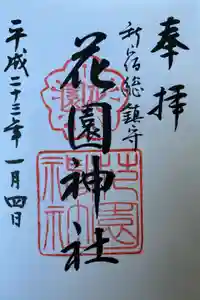 奉拝
新宿総鎮守
花園神社
平成二十三年一月四日